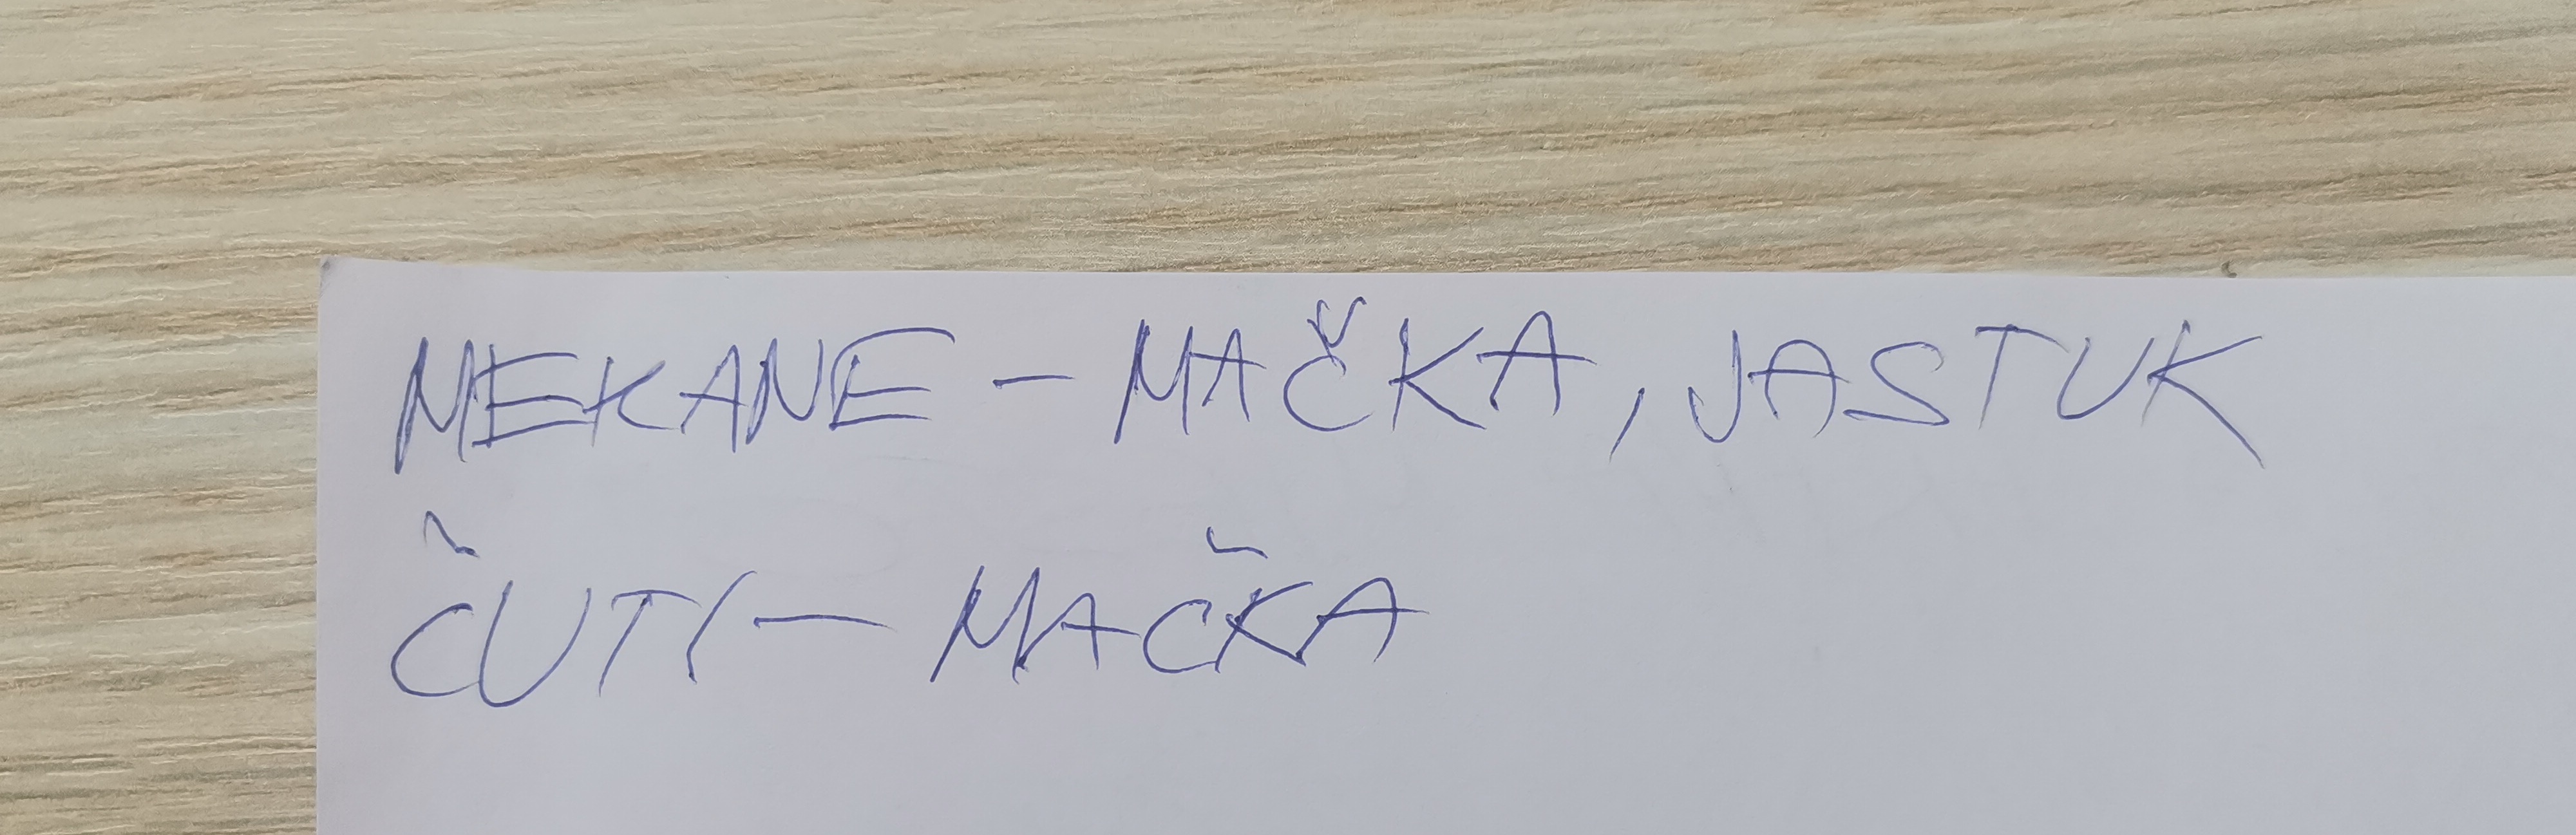 MEKANE - MAČKA, JASTUK
ČUTI - MAČKA